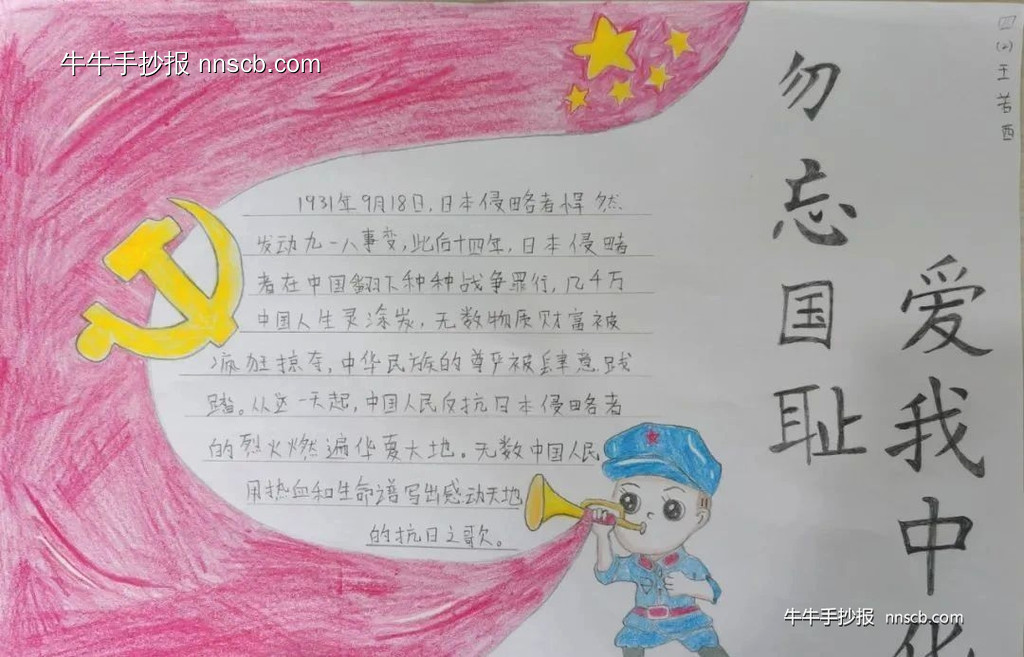 牛牛手抄报 nnscb.com
四(2)王若西
勿忘国耻
爱我中华
1931年9月18日,日本侵略者悍然
发动九一八事变,此后十四年,日本侵略
者在中国翻下种种战争罪行,几千万
中国人生灵涂炭,无数物质财富被
疯狂掠夺,中华民族的尊严被肆意践
踏。从这一天起,中国人民反抗日本侵略者
的烈火燃遍华夏大地。无数中国人民
用热血和生命谱写出感动天地
的抗日之歌。
牛牛手抄报 nnscb.com